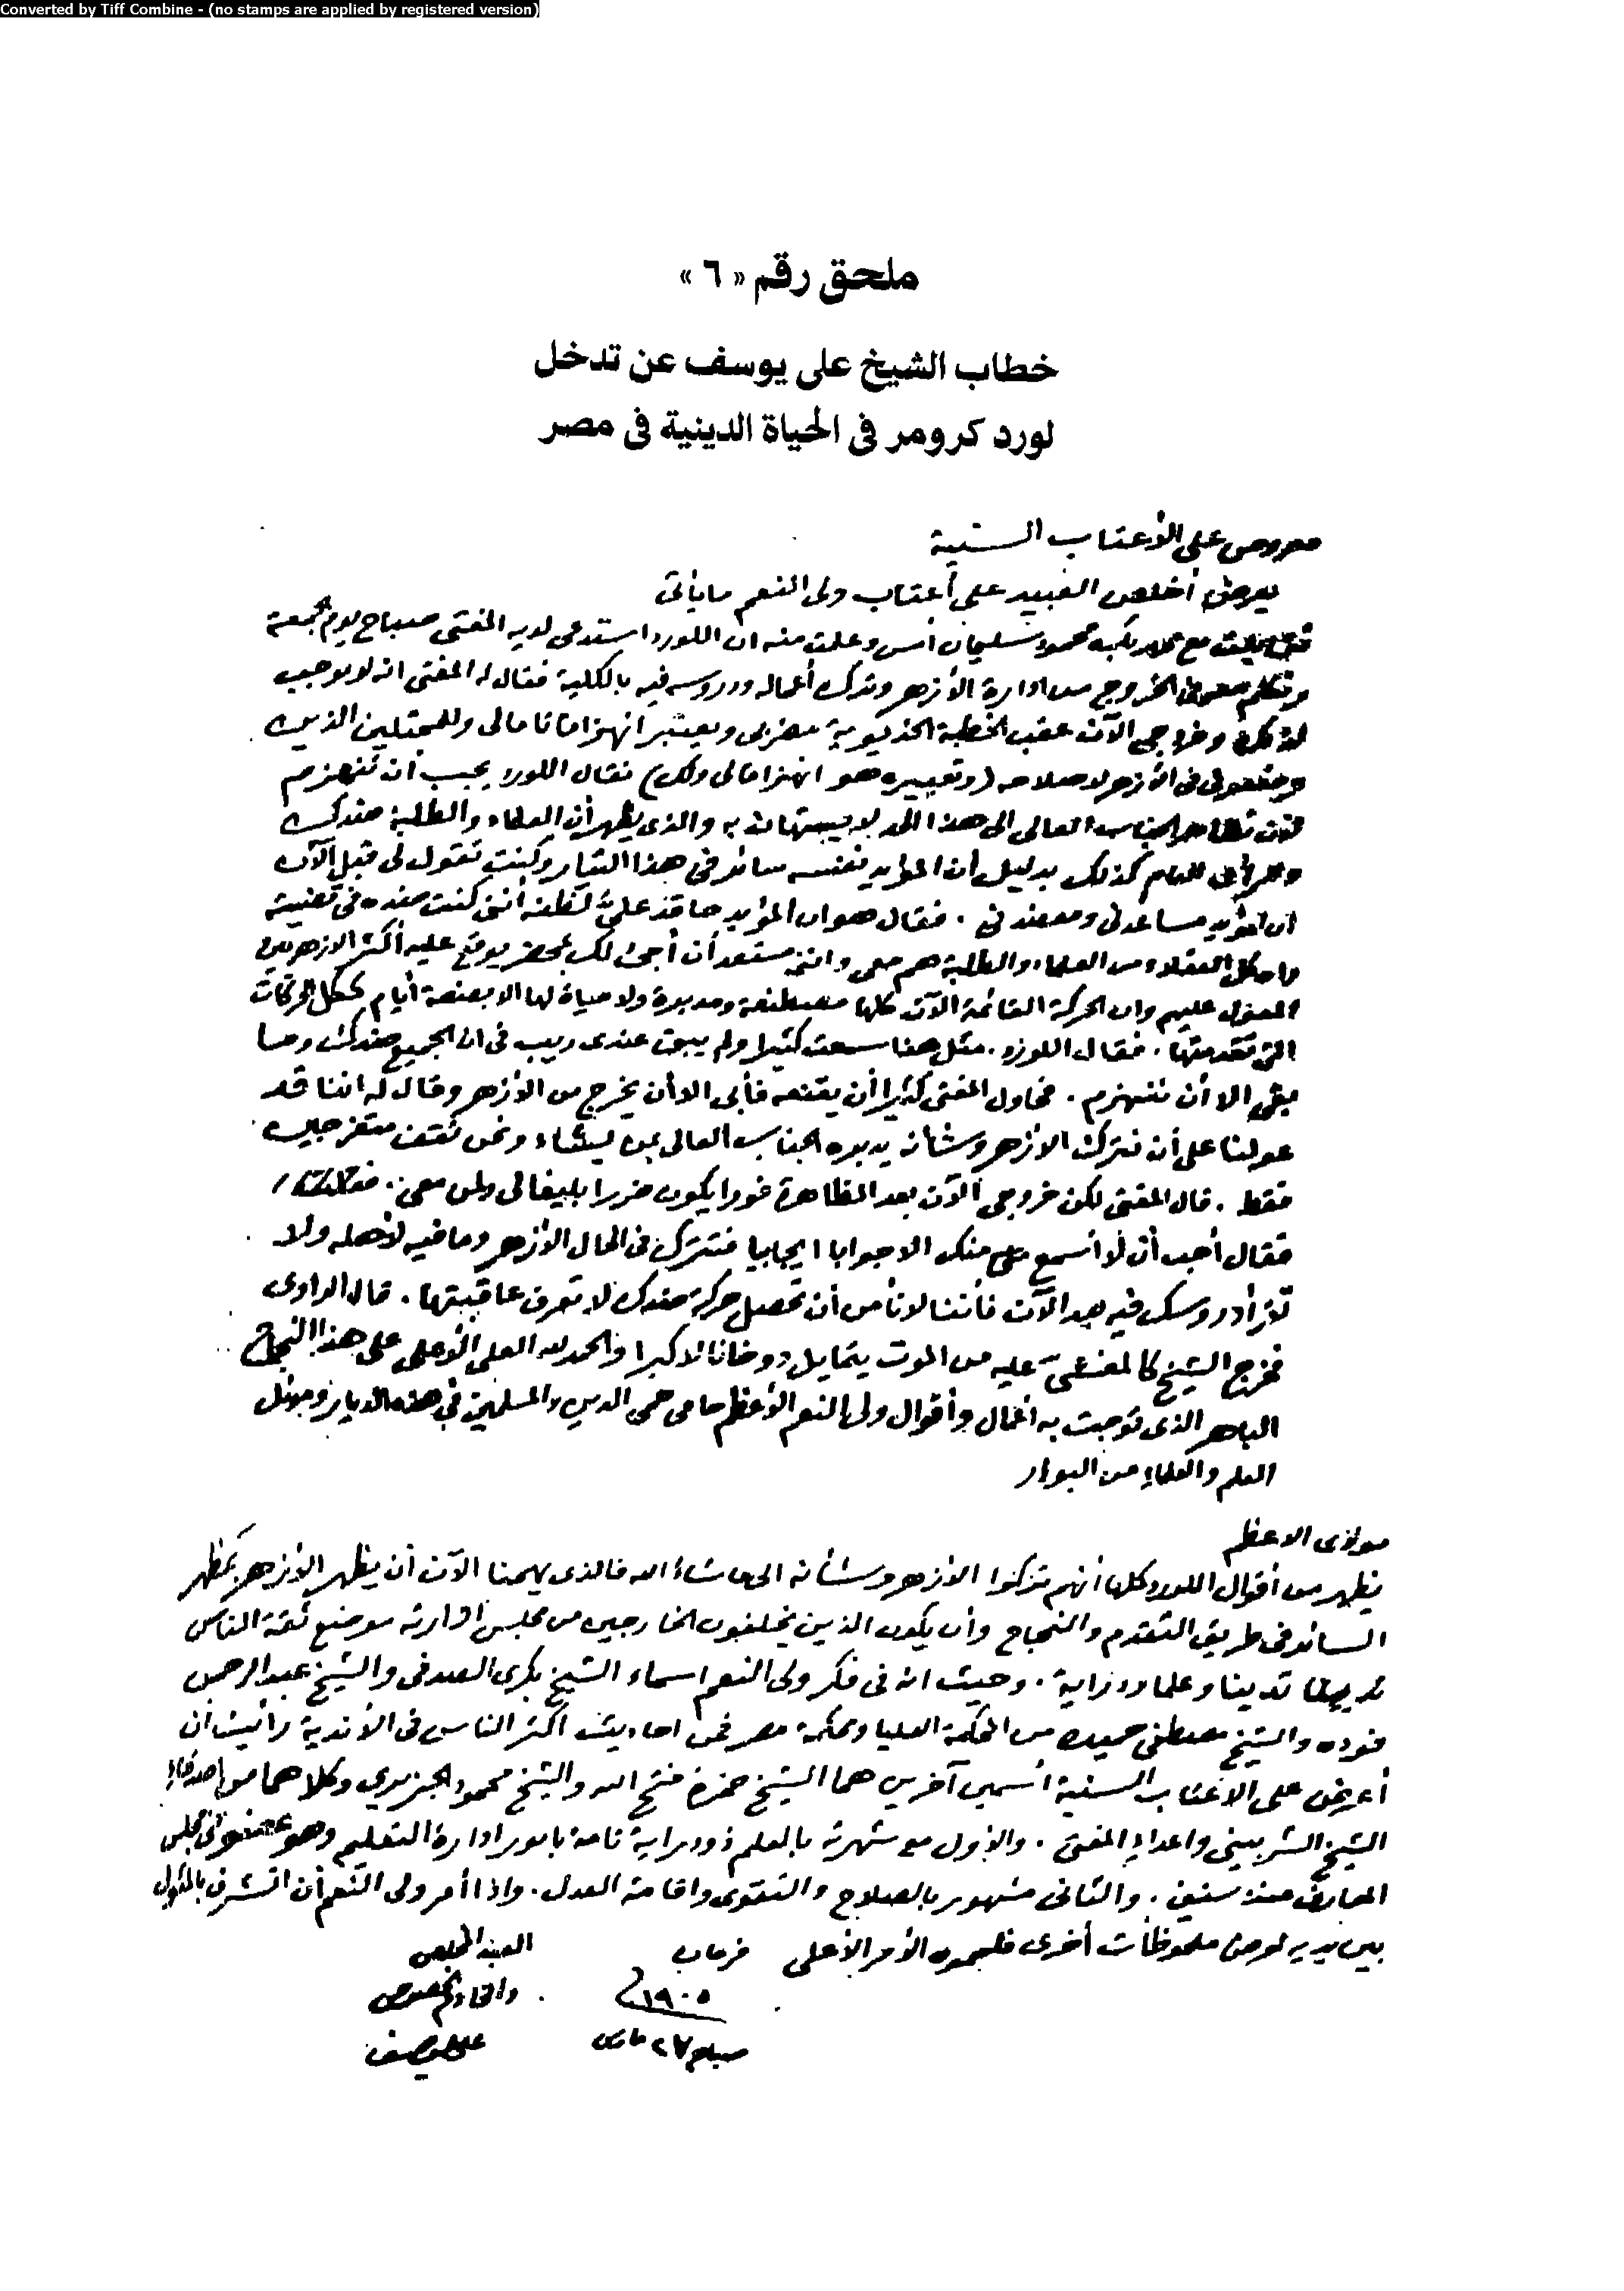 Converted by Tiff Combine - (no stamps are applied by registered version)
ملحق رقم « ٦ »
خطاب الشيخ على يوسف عن تدخل
لورد كرومر فى الحياة الدينية فى مصر
معروض على الأعتاب السنية
يعرض أخلص العبيد على أعتاب ولى النعم ما يأتى
مع محمود سليمان أمس وعلمت منه ان اللورد استدعى لديه المفتى صباح يوم الجمعة
الخروج من ادارة الأزهر وترك أعماله ودروسه فيه بالكلية فقال له المفتى انه لا موجب
لذلك وخروجى الآن عقب الخطبة الخديوية مضر بى ويعتبر انهزاما تاما لى وللممثلين الذين
فى الأزهر لاصلاحه (وتعبيره هو انهزاما لى ولك) فقال اللورد يجب أن ننهزم
الجناب العالى الى هذا الحد لا يستهان به والذى يظهر أن العلماء والطلبة ضدك
والرأى العام كذلك بدليل أن المؤيد نفسه سائر فى هذا التيار وكنت تقول لى قبل الآن
ان المؤيد مساعدنى ومعضدنى . فقال هو ان المؤيد حاقد علىّ لظنه أننى كنت ضده فى قضيته
وكل العقلاء من العلماء والطلبة هم معى واننى مستعد أن أجئ لك بمحضر يوقع عليه أكثر الازهريين
المعول عليهم وان الحركة القائمة الآن كلها مصطنعة ومدبرة ولا حياة لها الا بضعة أيام ككل الحركات
التى تقدمتها . فقال اللورد . مثل هذا سمعت كثيرا ولم يبق عندى ريب فى ان الجميع ضدك وما
بقى الا أن ننهزم . فحاول المفتى كثيرا أن يقنعه فأبى الا أن يخرج من الأزهر وقال له اننا قد
عولنا على أن نترك الازهر وشأنه يديره الجناب العالى بمن يشاء ونحن نقف متفرجين
فقط . قال المفتى لكن خروجى الآن بعد المظاهرة فورا يكون ضررا بليغا لى ولمن معى .
فقال أحب أن لا أسمع منك الا جوابا ايجابيا فتترك فى الحال الأزهر وما فيه لأهله ولا
تقرأ دروسك فيه بعد الآن فأننا لا نأمن أن تحصل حركة ضدك لا تعرف عاقبتها . قال الراوى
فخرج الشيخ كالمغشىّ عليه من الموت يتمايل دوخانا الله اكبر والحمد لله العلى الأعلى على هذا النجاح
الباهر الذى توجت به أعمال وأقوال ولى النعم الأعظم حامى حمى الدين والمسلمين فى هذه الديار
العلم والعلماء من البوار
مولاى الاعظم
يظهر من أقوال اللورد كلها أنهم تركوا الأزهر وشأنه الى ما شاء الله فالذى يهمنا الآن أن يظهر الأزهر بمظهر
السائر فى طريق التقدم والنجاح وأن يكون الذين يخلفون الخارجين من مجلس ادارته موضع ثقة الناس
تدينا وعلما ودراية . وحيث انه فى فكر ولى النعم اسماء الشيخ بكرى الصدفى والشيخ عبد الرحمن
فوده والشيخ مصطفى حميده من المحكمة العليا ومحكمة مصر فمن احاديث اكثر الناس فى الأندية رأيت ان
أعرض على الاعتاب السنية اسمين آخرين هما الشيخ حمزة فتح الله والشيخ محمود الجزيري وكلاهما من اصدقاء
الشيخ الشربينى واعداء المفتى . والأول مع شهرته بالعلم ذو دراية تامة بامور ادارة التعليم وهو عضو فى مجلس
المعارف منذ سنين . والثانى مشهور بالصلاح والتقوى واقامة العدل . واذا أمر ولى النعم أن اتشرف بالمثول
بين يديه لعرض ملحوظات أخرى الأمر الأعلى
العبد المخلص
والخادم الخصوصى
على يوسف
١٩٠٥
صباح ٢٧ مارس